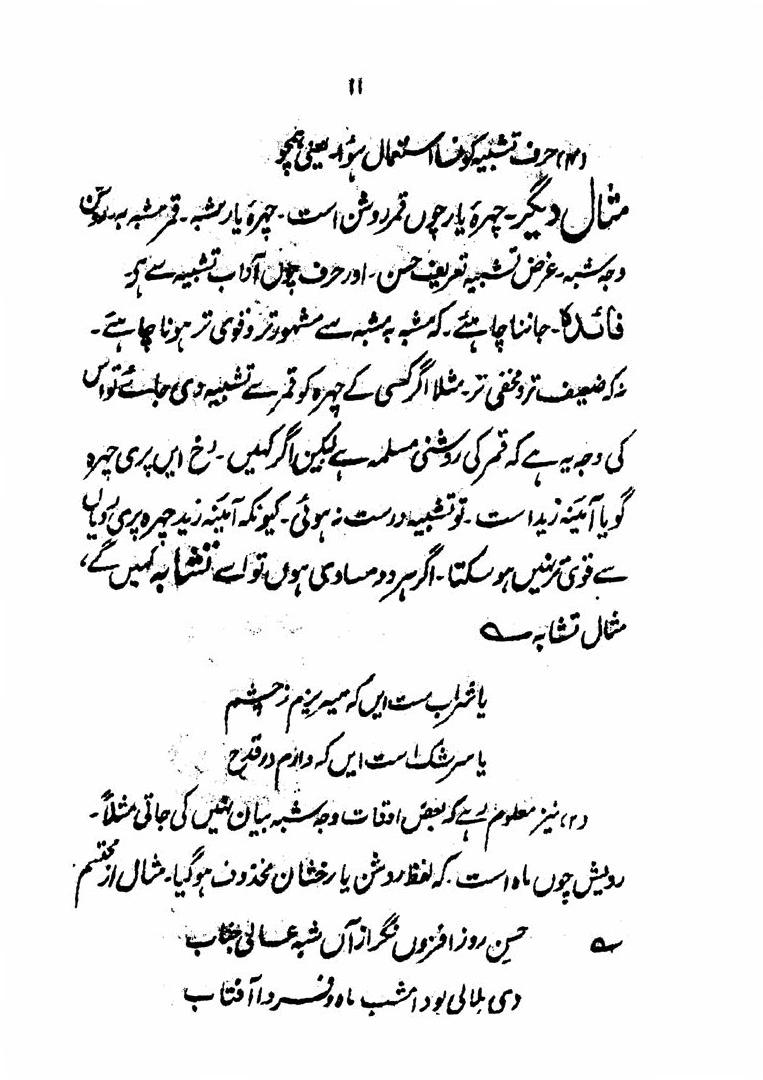 ۱۱
(۴) حرف تشبیہ کونسا استعمال ہوا۔ یعنی ہمچو
مثال دیگر۔ چہرۂ یار چوں قمر روشن است۔ چہرۂ یار مشبہ۔ قمر مشبہ بہ۔ روشن
وجہ شبہ۔ غرض تشبیہ تعریف حسن۔ اور حرف چوں آداب تشبیہ سے ہے۔
فائدہ۔ جاننا چاہئے۔ کہ مشبہ بہ مشبہ سے مشہور تر و قوی تر ہونا چاہئے۔
نہ کہ ضعیف تر و مخفی تر۔ مثلا اگر کسی کے چہرہ کو قمر سے تشبیہ دی جائے تو اس
کی وجہ یہ ہے کہ قمر کی روشنی مسلمہ ہے لیکن اگر کہیں۔ رخ ایں پری چہرہ
گویا آئینہ زید است۔ تو تشبیہ درست نہ ہوئی۔ کیونکہ آئینہ زید چہرہ پری رویاں
سے قوی تر نہیں ہو سکتا۔ اگر ہر دو مساوی ہوں تو اسے تشابہ کہیں گے،
مثال تشابہ ؎
یا شراب ست ایں کہ میریزم ز چشم
یا سرشک است ایں کہ دارم در قدح
(۲) نیز معلوم رہے کہ بعض اوقات وجہ شبہ بیان نہیں کی جاتی مثلاً۔
رویش چوں ماہ است۔ کہ لفظ روشن یا رخشان محذوف ہو گیا۔ مثال از محتشم
؎ حسن روز افزوں نگر از آں شبہ عالی جناب
دی ہلالی بود امشب ماہ و فردا آفتاب